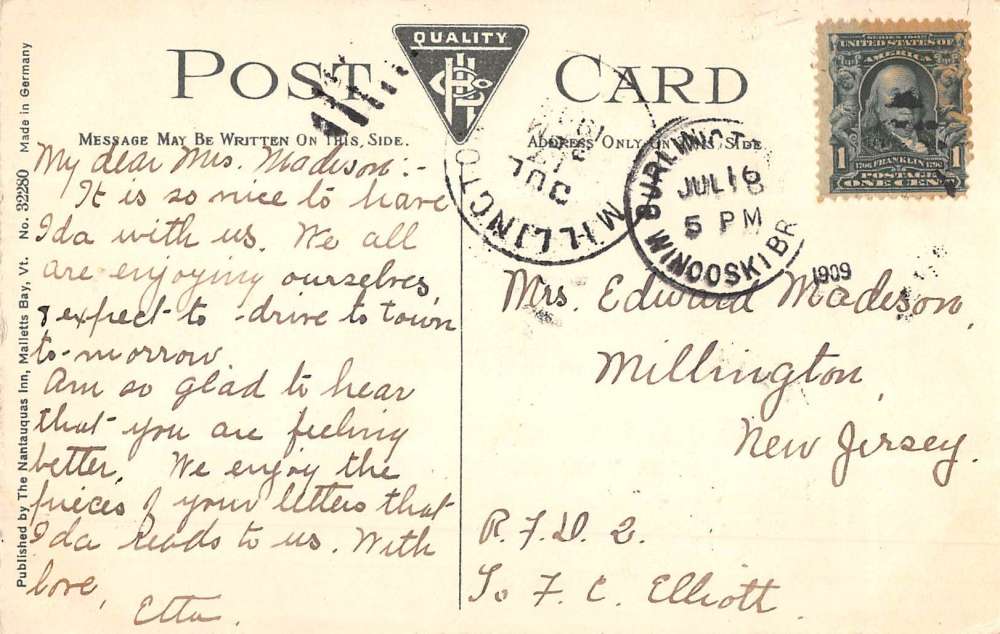 POST CARD
QUALITY
MESSAGE MAY BE WRITTEN ON THIS SIDE.
ADDRESS ONLY ON THIS SIDE
Published by The Nantauquas Inn, Malletts Bay, Vt. No. 32280 Made in Germany
My dear Mrs. Madison:-
It is so nice to have
Ida with us. We all
are enjoying ourselves,
& expect to drive to town
to-morrow.
Am so glad to hear
that you are feeling
better. We enjoy the
pieces of your letters that
Ida reads to us. With
love,
Etta.
MILLINGTO
JUL
BURLINGT
JUL 18
5 PM
WINOOSKI BR
1909
SERIES 1902
UNITED STATES OF
AMERICA
1 1706 FRANKLIN 1790 1
POSTAGE
ONE CENT
Mrs. Edward Madison,
Millington,
New Jersey.
R.F.D. 2.
℅ F. C. Elliott